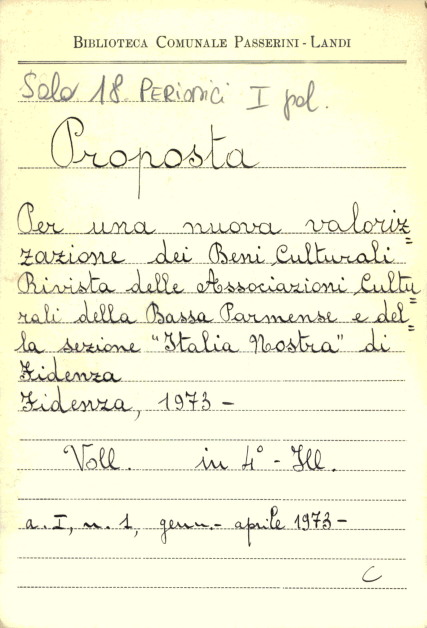 BIBLIOTECA COMUNALE PASSERINI - LANDI
Sala 18 PERIODICI I pal.
Proposta
Per una nuova valoriz=
zazione dei Beni Culturali
Rivista delle Associazioni Cultu=
rali della Bassa Parmense e del=
la sezione "Italia Nostra" di
Fidenza
Fidenza, 1973 -
Voll. in 4° - Ill.
a. I, n. 1, genn. - aprile 1973 -
C